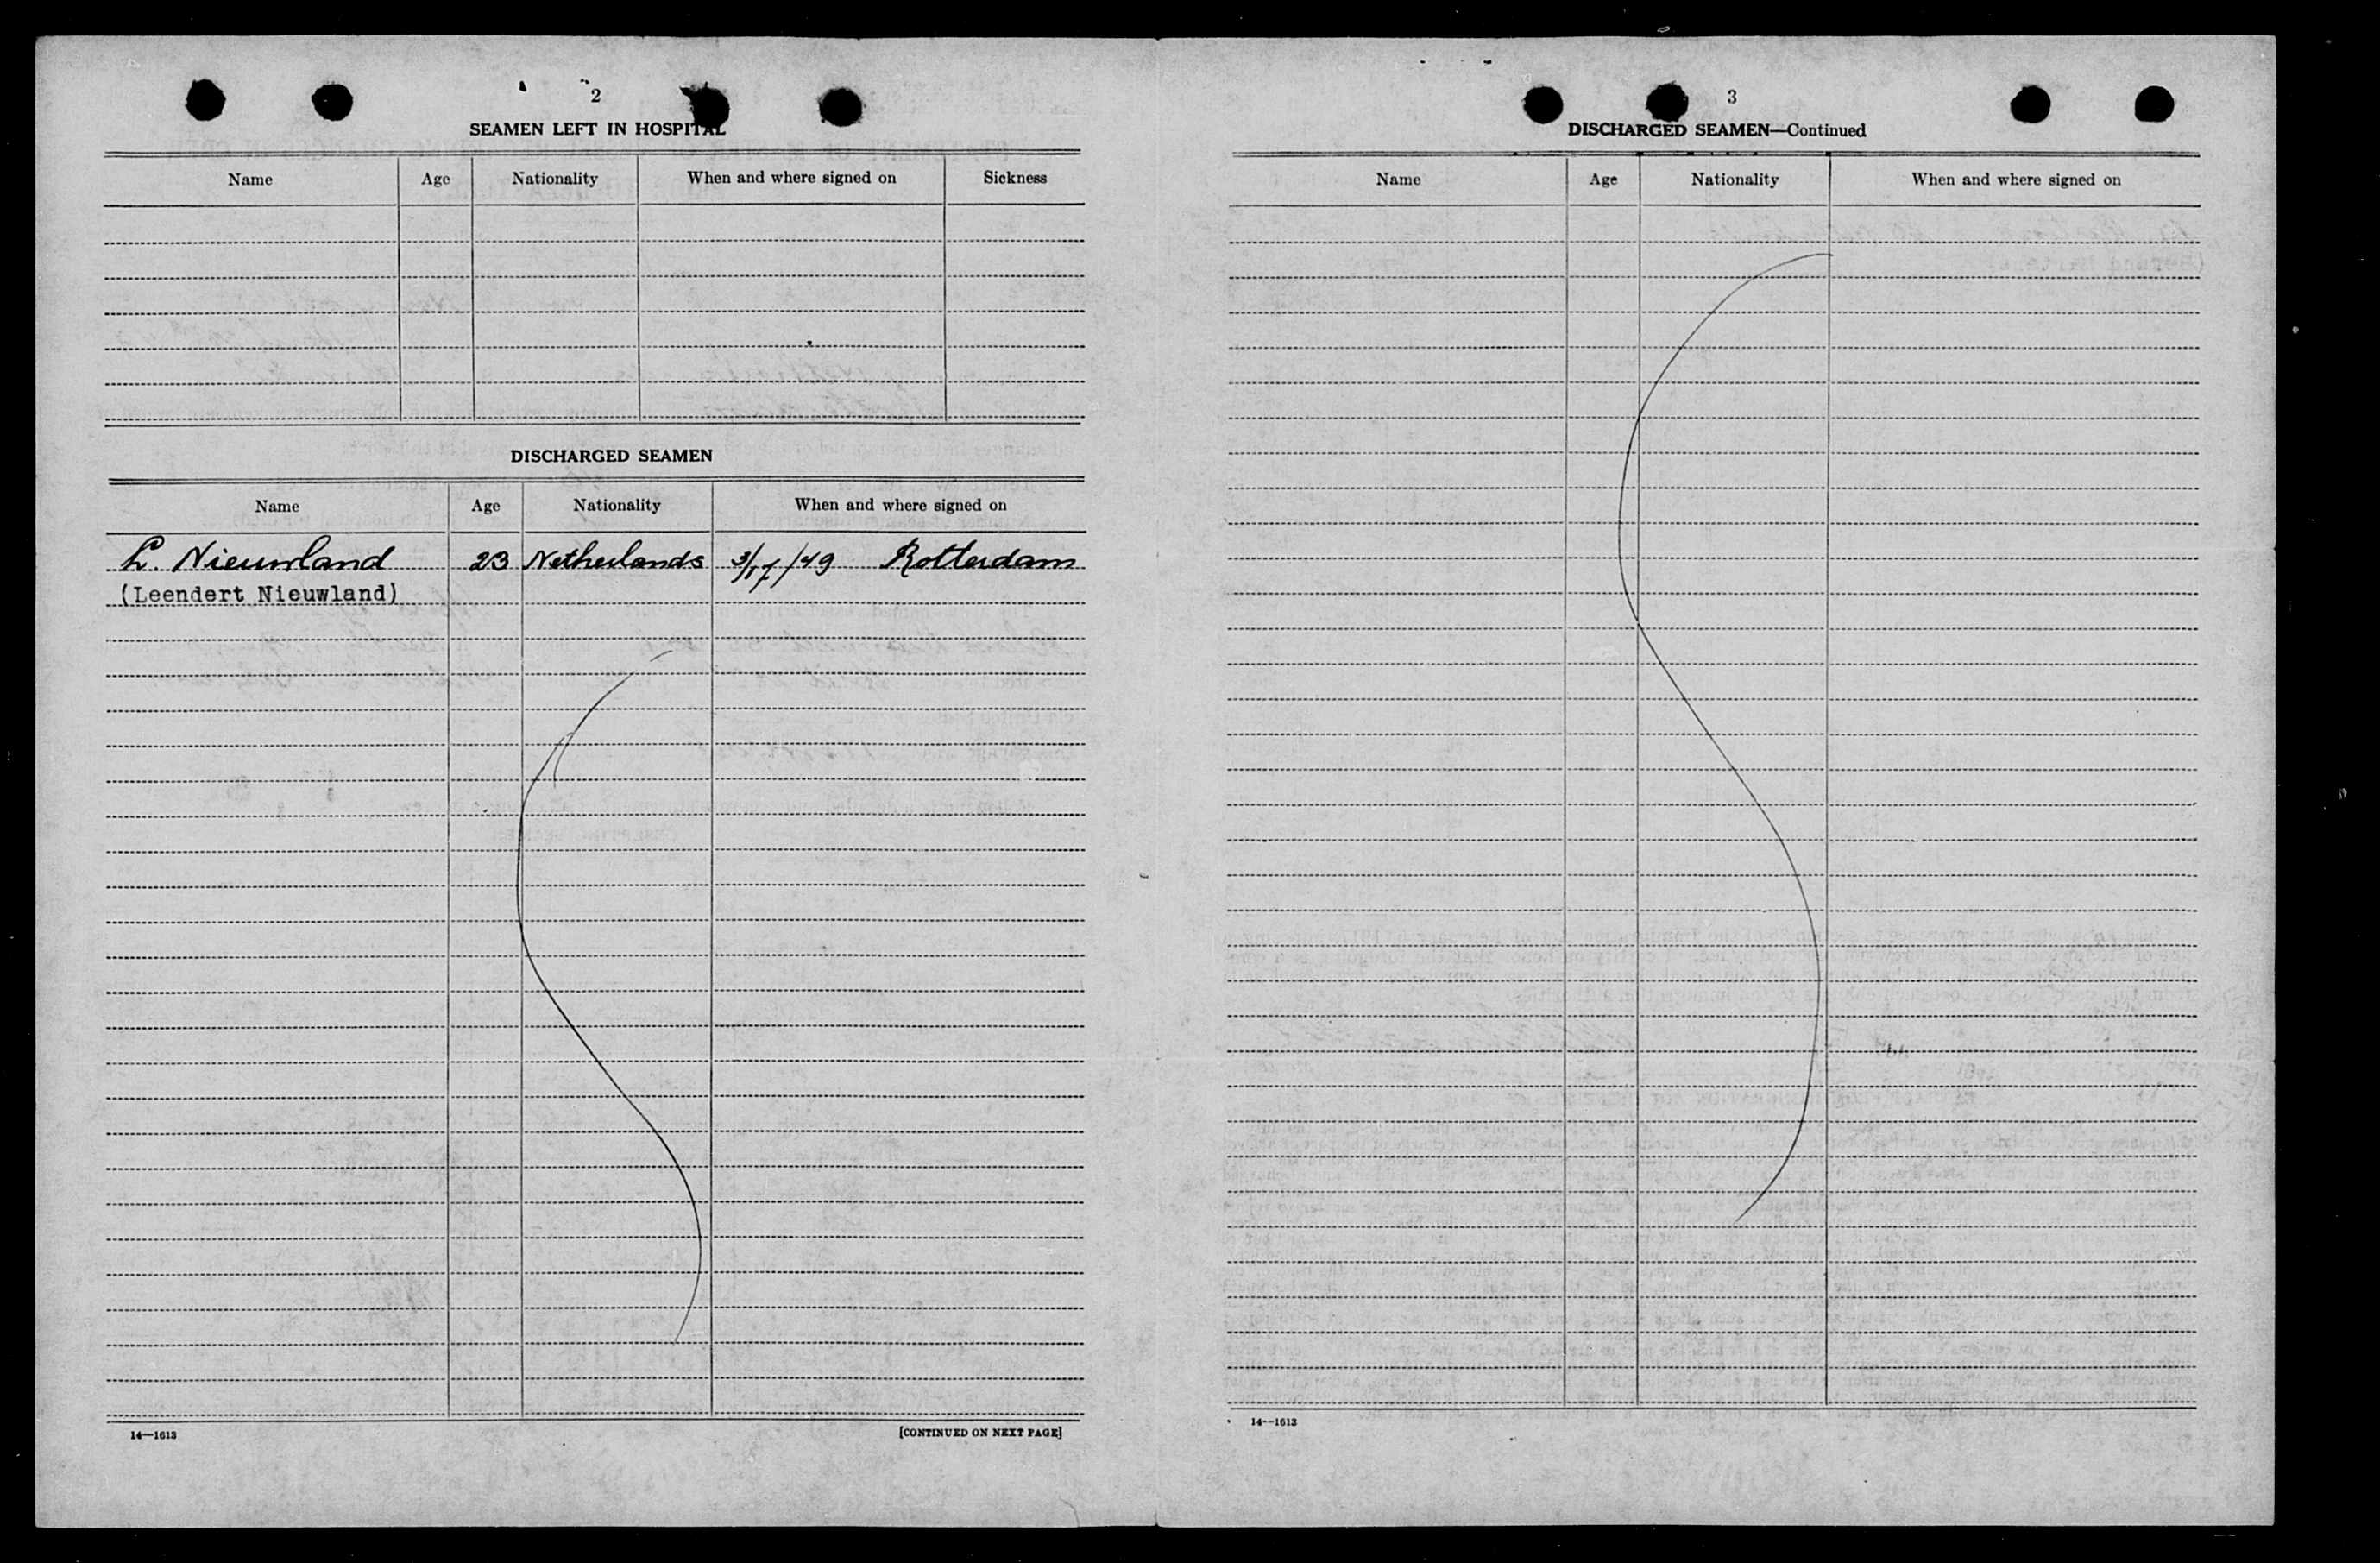 2
SEAMEN LEFT IN HOSPITAL
Name Age Nationality When and where signed on Sickness
DISCHARGED SEAMEN
Name Age Nationality When and where signed on
L. Nieuwland 23 Netherlands 3/17/49 Rotterdam
(Leendert Nieuwland)
14—1613
[CONTINUED ON NEXT PAGE]
3
DISCHARGED SEAMEN—Continued
Name Age Nationality When and where signed on
14—1613